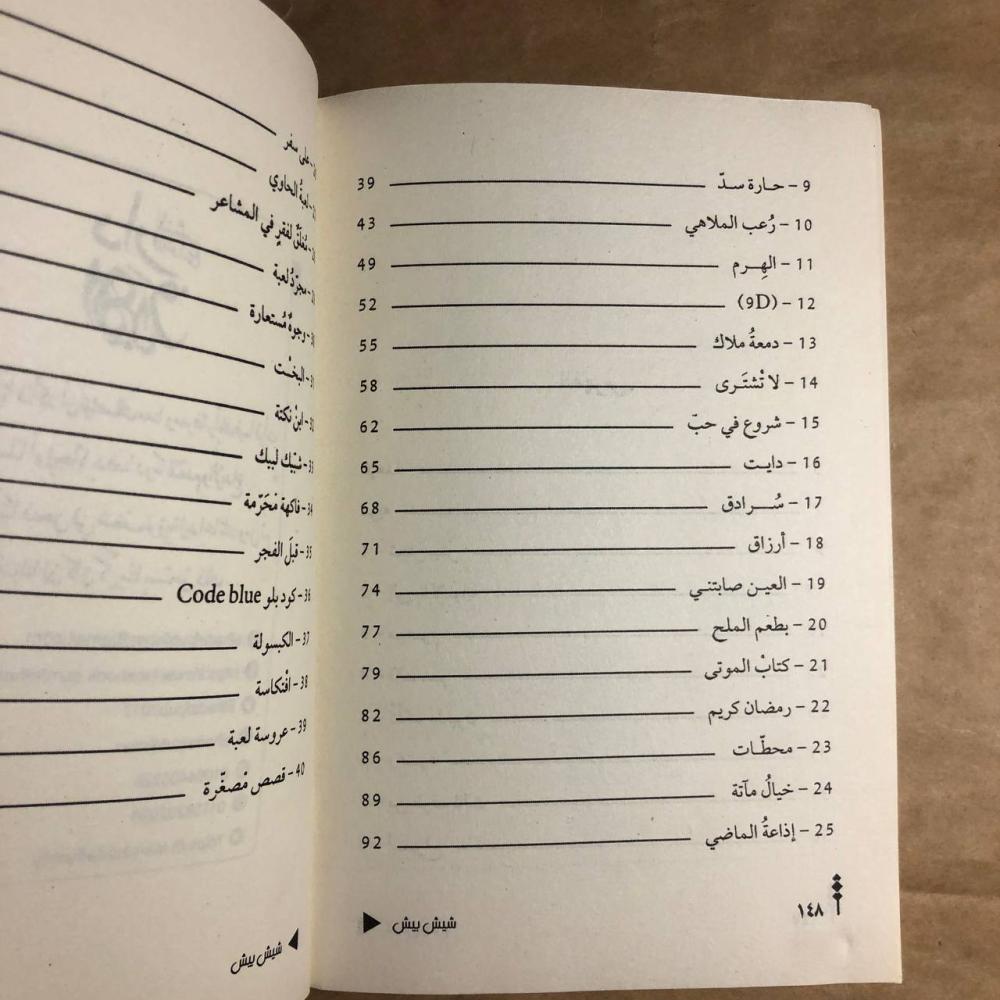 9 - حارة سدّ 39
10 - رُعب الملاهي 43
11 - الهِرم 49
12 - (9D) 52
13 - دمعةُ ملاك 55
14 - لا تْشتَرى 58
15 - شروع في حبّ 62
16 - دايت 65
17 - سُرادق 68
18 - أرزاق 71
19 - العين صابتني 74
20 - بطعم الملح 77
21 - كتابْ الموتى 79
22 - رمضان كريم 82
23 - محطّات 86
24 - خيالُ مآتة 89
25 - إذاعةُ الماضي 92
١٤٨
شيش بيش
على سفر
لعبةُ الحاوي
مُغلقٌ لفقرٍ في المشاعر
مجرّدُ لعبة
وجوهٌ مُستعارة
البخْت
ابنْ نكتة
33 - شبّيك لبيك
34 - فاكهة مْحَرّمة
35 - قبلَ الفجر
36 - كود بلو Code blue
37 - الكبسولة
38 - افْتكاسة
39 - عروسة لعبة
40 - قصص مْصغّرة
شيش بيش